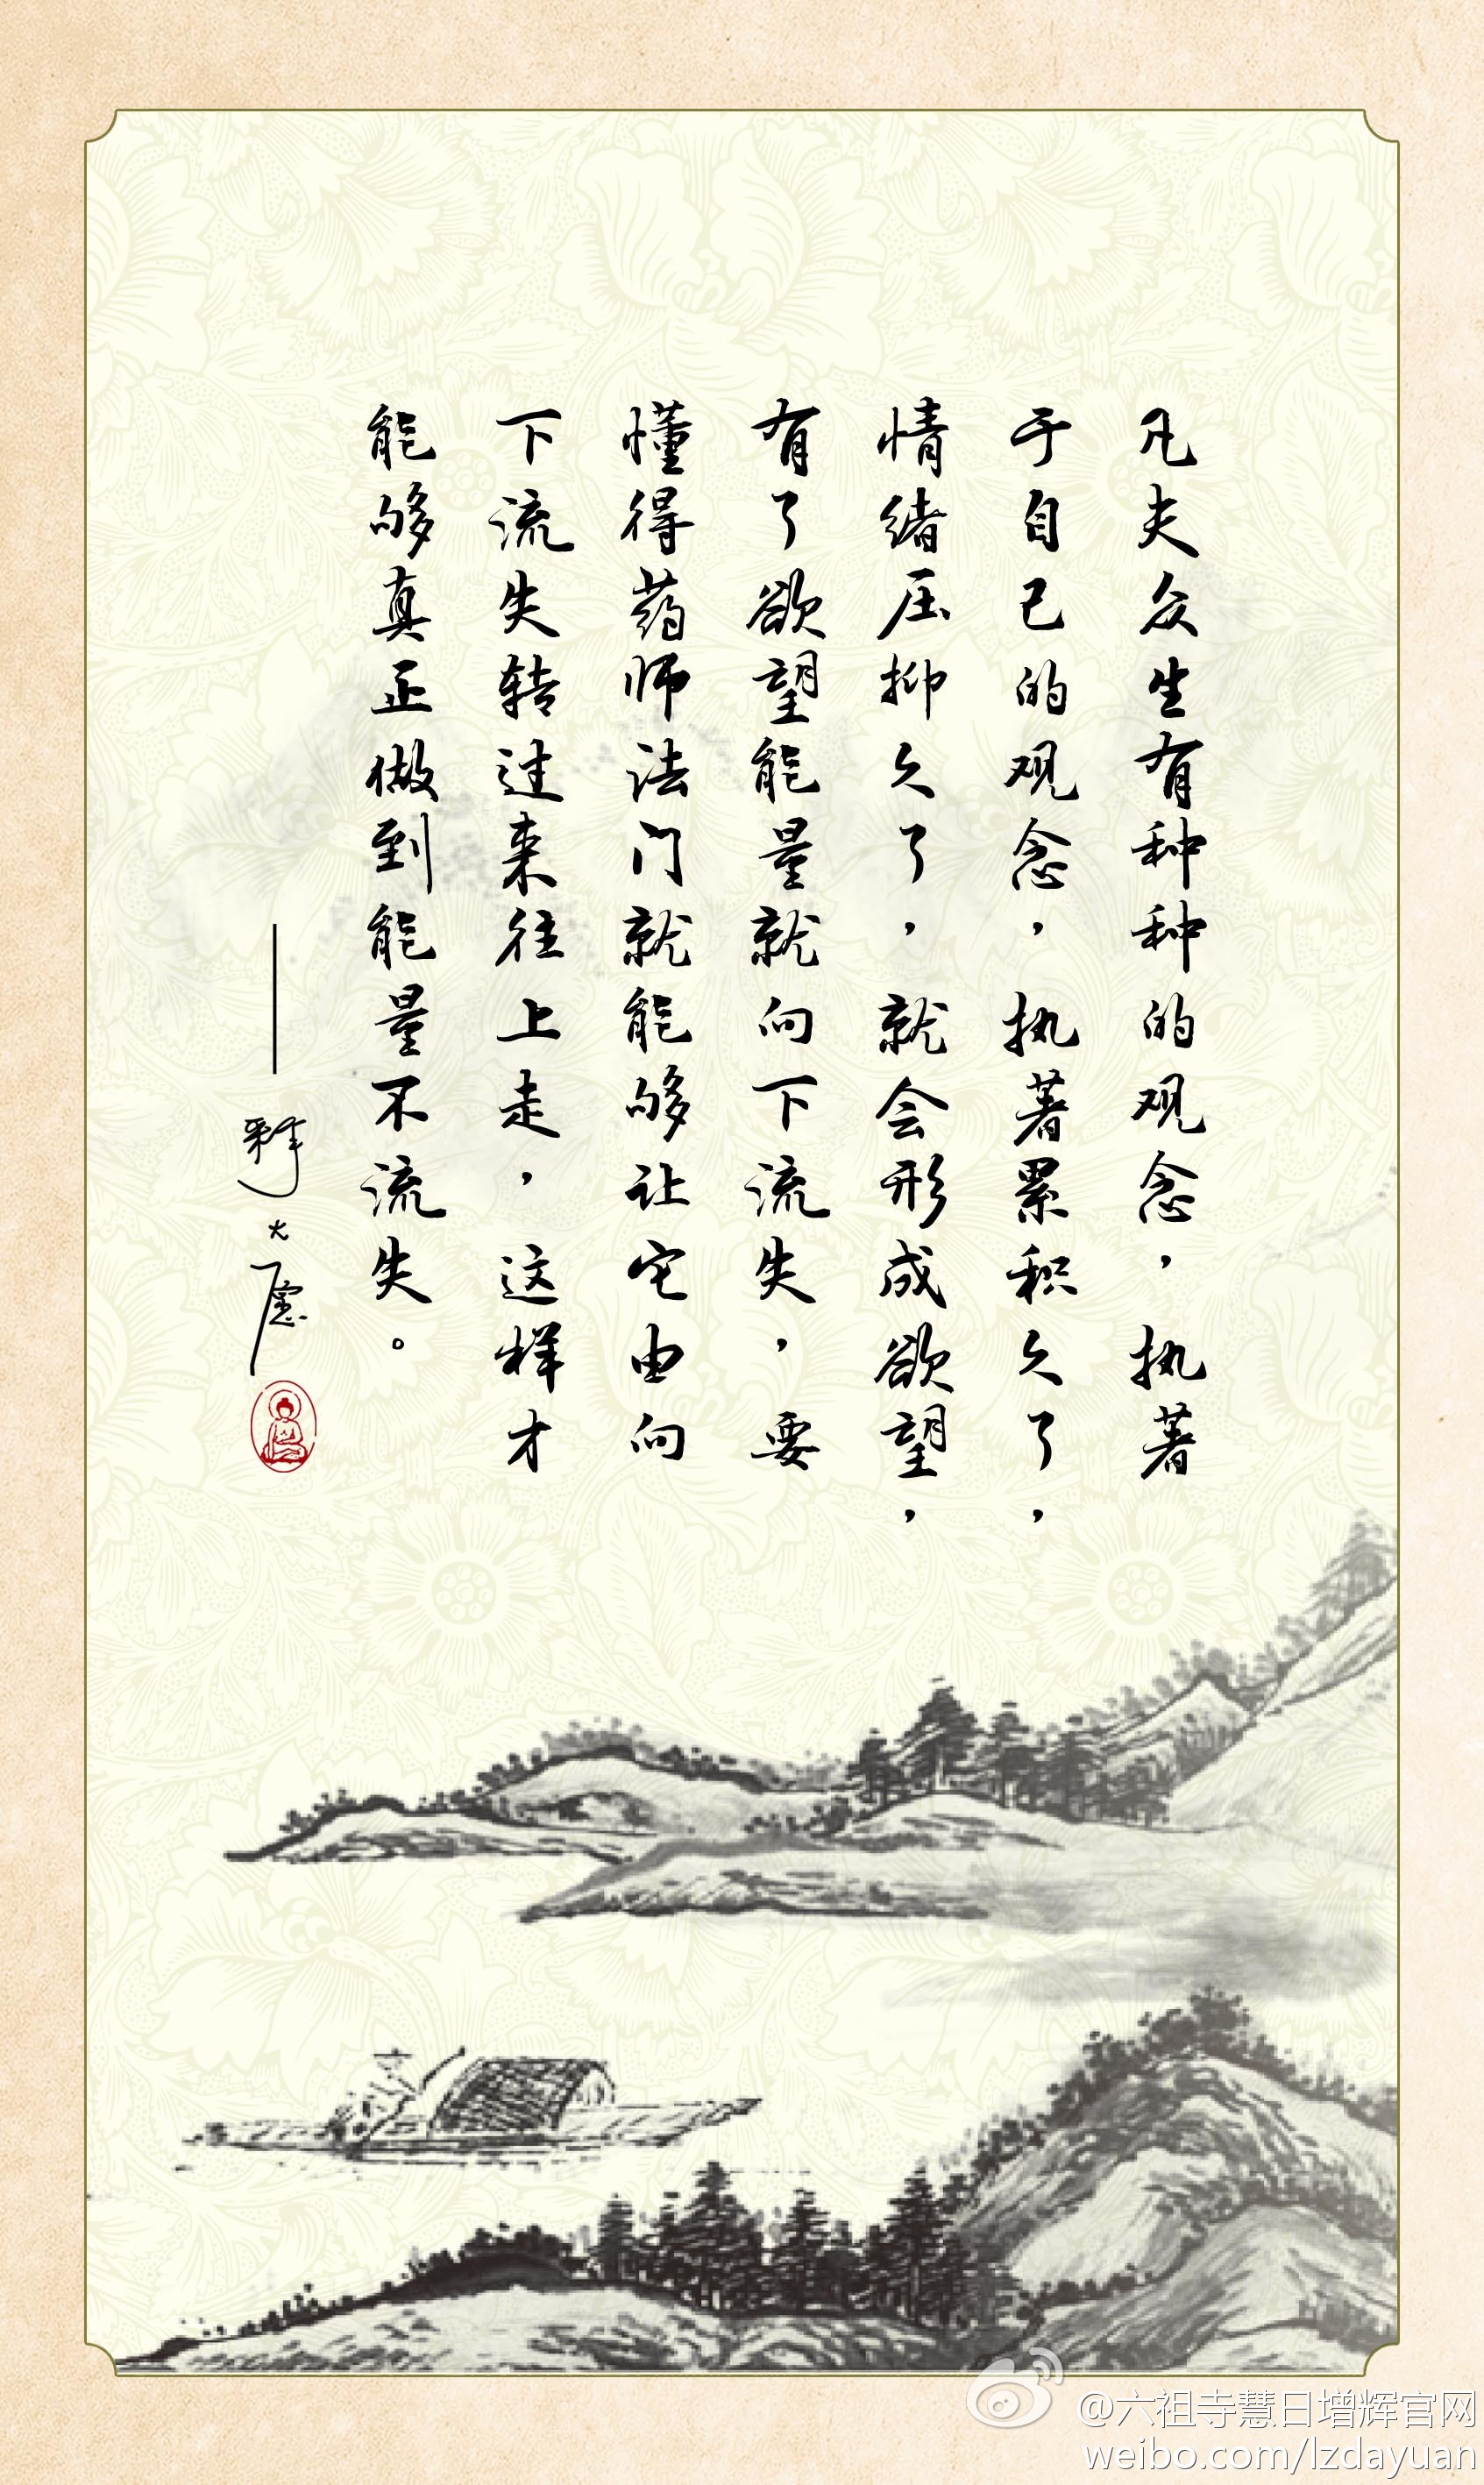 凡夫众生有种种的观念，执著
于自己的观念，执著累积久了，
情绪压抑久了，就会形成欲望，
有了欲望能量就向下流失，要
懂得药师法门就能够让它由向
下流失转过来往上走，这样才
能够真正做到能量不流失。
——释大愿
@六祖寺慧日增辉官网
weibo.com/lzdayuan